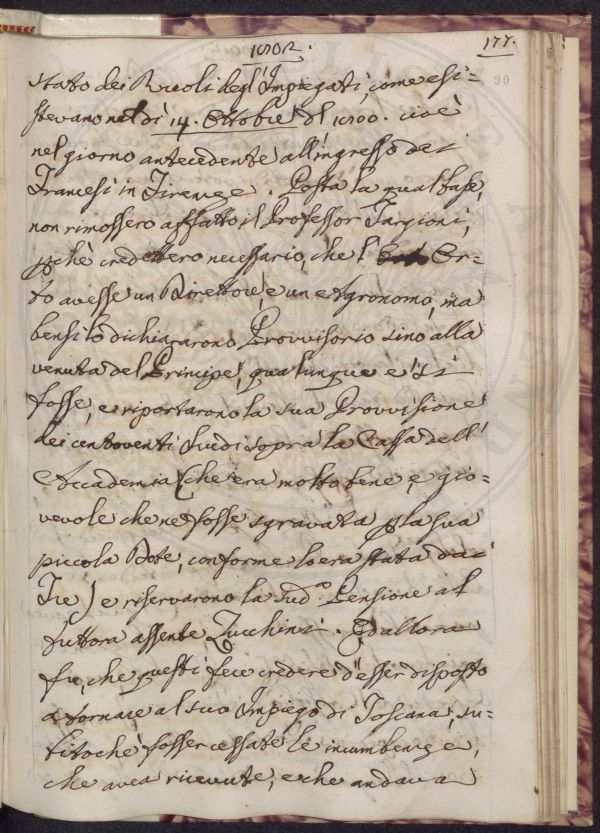 1802.
177.
stato dei Ruoli degl'Impiegati, come esi=
stevano nel dì 14. Ottobre dl 1800. cioè
nel giorno antecedente all'ingresso dei
Francesi in Firenze. Posta la qual base,
non rimossero affatto il Professor Targioni,
pchè credettero necessario, che l' Or=
to avesse un Direttore, e un Agronomo, ma
bensì lo dichiararono Provvisorio sino alla
venuta del Principe, qualunque ei si
fosse, e riportarono la sua Provvisione
dei centoventi Scudi sopra la Cassa dell'
Accademia (che era molto bene, e gio=
vevole che ne fosse sgravata p la sua
piccola Dote, conforme lo era stata dai
Tre) e riservarono la sudª. Pensione al
tuttora assente Zucchini. Ed allora
fu, che questi fece credere d'esser disposto
a tornare al suo Impiego di Toscana, su=
bitochè fosser cessate le incumbenze,
che avea ricevute, e che andava